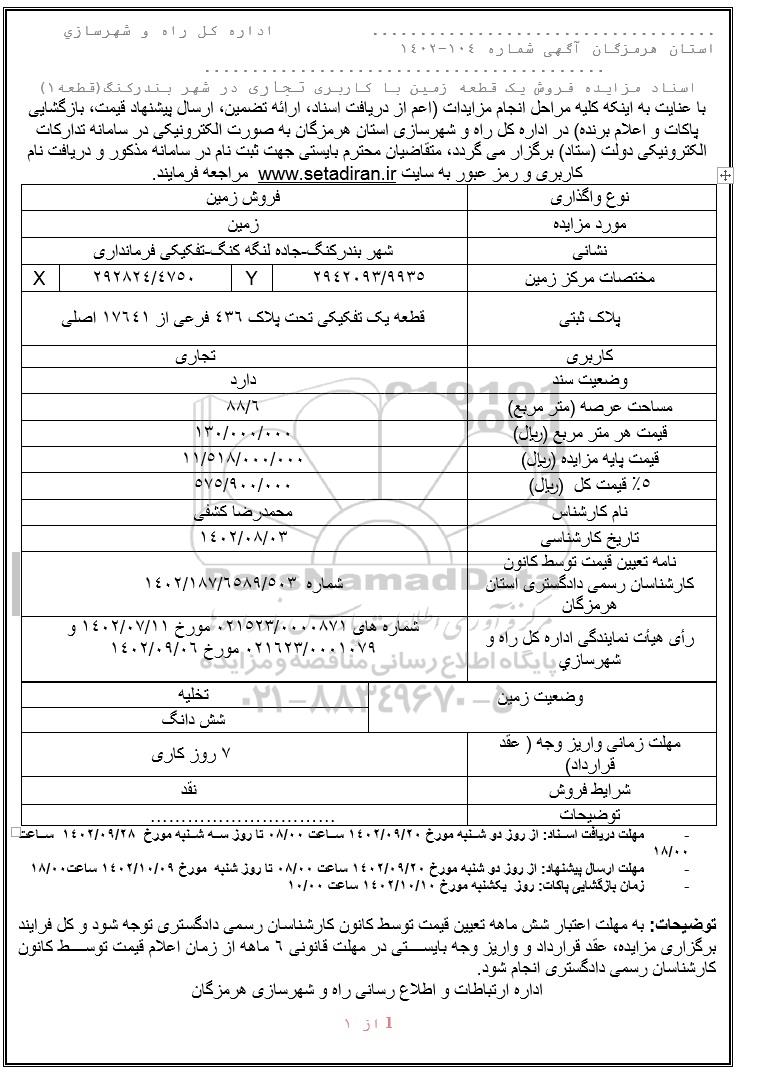 ........................................ اداره کل راه و شهرسازي
استان هرمزگان آگهی شماره ۱۰۴-۱۴۰۲
............................................
اسناد مزایده فروش یک قطعه زمین با کاربری تجاری در شهر بندرکنگ(قطعه۱)
با عنایت به اینکه کلیه مراحل انجام مزایدات (اعم از دریافت اسناد، ارائه تضمین، ارسال پیشنهاد قیمت، بازگشایی
پاکات و اعلام برنده) در اداره کل راه و شهرسازی استان هرمزگان به صورت الکترونیکی در سامانه تدارکات
الکترونیکی دولت (ستاد) برگزار می گردد، متقاضیان محترم بایستی جهت ثبت نام در سامانه مذکور و دریافت نام
کاربری و رمز عبور به سایت www.setadiran.ir مراجعه فرمایند.
نوع واگذاری فروش زمین
مورد مزایده زمین
نشانی شهر بندرکنگ-جاده لنگه کنگ-تفکیکی فرمانداری
مختصات مرکز زمین ۲۹۴۲۰۹۳/۹۹۳۵ Y ۲۹۲۸۲۴/۴۷۵۰ X
پلاک ثبتی قطعه یک تفکیکی تحت پلاک ۴۳۶ فرعی از ۱۷۶۴۱ اصلی
کاربری تجاری
وضعیت سند دارد
مساحت عرصه (متر مربع) ۸۸/۶
قیمت هر متر مربع (ریال) ۱۳۰/۰۰۰/۰۰۰
قیمت پایه مزایده (ریال) ۱۱/۵۱۸/۰۰۰/۰۰۰
۵٪ قیمت کل (ریال) ۵۷۵/۹۰۰/۰۰۰
نام کارشناس محمدرضا کشفی
تاریخ کارشناسی ۱۴۰۲/۰۸/۰۳
نامه تعیین قیمت توسط کانون
کارشناسان رسمی دادگستری استان شماره ۱۴۰۲/۱۸۷/۶۵۸۹/۵۰۳
هرمزگان
رأی هیأت نمایندگی اداره کل راه و شماره های ۰۲۱۵۲۳/۰۰۰۰۸۷۱ مورخ ۱۴۰۲/۰۷/۱۱ و
شهرسازي ۰۲۱۶۲۳/۰۰۰۱۰۷۹ مورخ ۱۴۰۲/۰۹/۰۶
ParsNamadData
پایگاه اطلاع رسانی مناقصه و مزایده
۰۲۱-۸۸۳۴۹۶۷۰-۵
وضعیت زمین تخلیه
شش دانگ
مهلت زمانی واریز وجه ( عقد ۷ روز کاری
قرارداد)
شرایط فروش نقد
توضیحات ..............................
- مهلت دریافت اسناد: از روز دو شنبه مورخ ۱۴۰۲/۰۹/۲۰ ساعت ۰۸/۰۰ تا روز سه شنبه مورخ ۱۴۰۲/۰۹/۲۸ ساعت
۱۸/۰۰
- مهلت ارسال پیشنهاد: از روز دو شنبه مورخ ۱۴۰۲/۰۹/۲۰ ساعت ۰۸/۰۰ تا روز شنبه مورخ ۱۴۰۲/۱۰/۰۹ ساعت۱۸/۰۰
- زمان بازگشایی پاکات: روز یکشنبه مورخ ۱۴۰۲/۱۰/۱۰ ساعت ۱۰/۰۰
توضیحات: به مهلت اعتبار شش ماهه تعیین قیمت توسط کانون کارشناسان رسمی دادگستری توجه شود و کل فرایند
برگزاری مزایده، عقد قرارداد و واریز وجه بایستی در مهلت قانونی ۶ ماهه از زمان اعلام قیمت توسط کانون
کارشناسان رسمی دادگستری انجام شود.
اداره ارتباطات و اطلاع رسانی راه و شهرسازی هرمزگان
1 از ۱